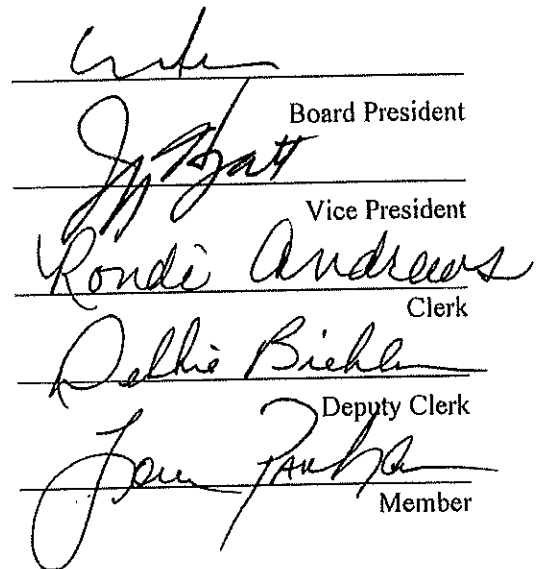 Board President
Hyatt
Vice President
Rondi Andrews
Clerk
Debbie Biehler
Deputy Clerk
Member